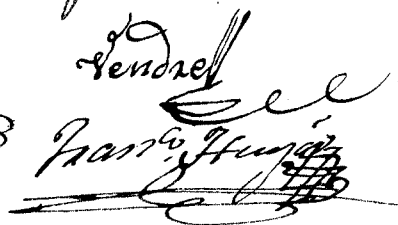 Vendrell
Fran.co Huyá